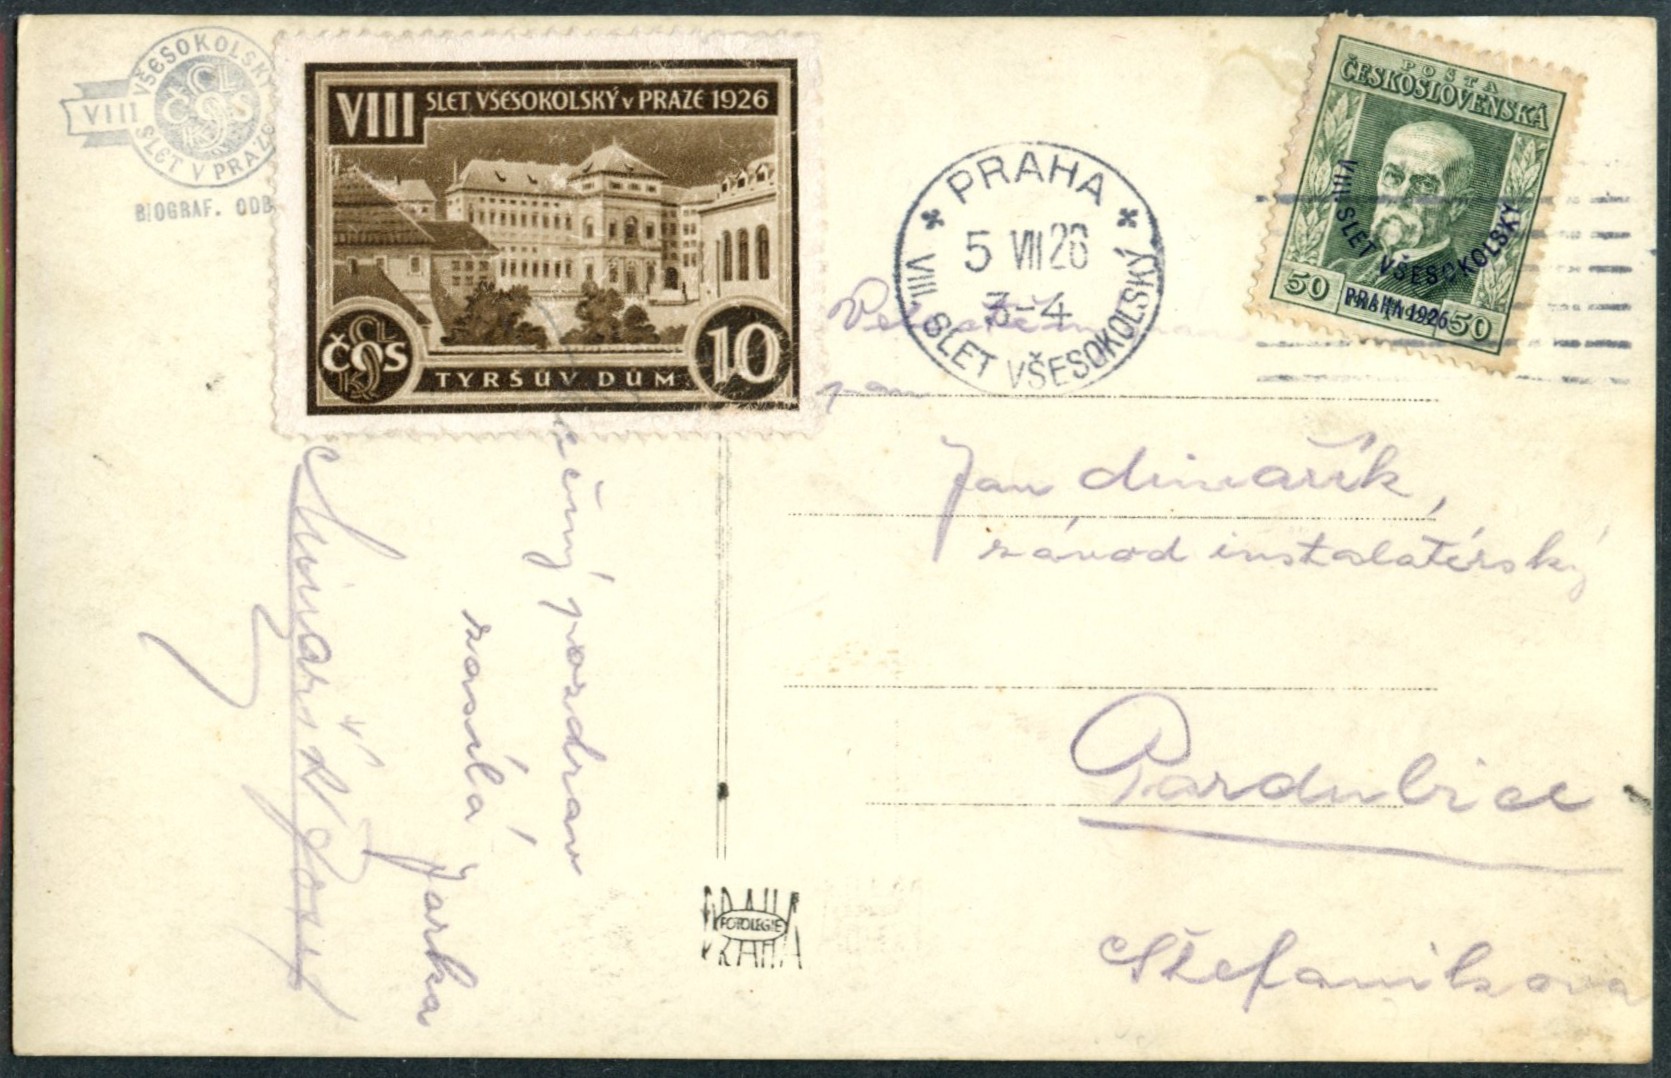 VŠESOKOLSKÝ
VIII
ČOS
SLET V PRAZE
BIOGRAF. ODB
VIII SLET VŠESOKOLSKÝ V PRAZE 1926
ČOS
TYRŠŮV DŮM
10
PRAHA
5 VII 26
3-4
VIII. SLET VŠESOKOLSKÝ
POŠTA
ČESKOSLOVENSKÁ
VIII. SLET VŠESOKOLSKÝ
PRAHA 1926
50 50
pan
Jan
závod instalatérský
Pardubice
Štefanikova
pozdrav
zasílá
Jarka
PRAHA
FOTOLEGIE
PRAHA